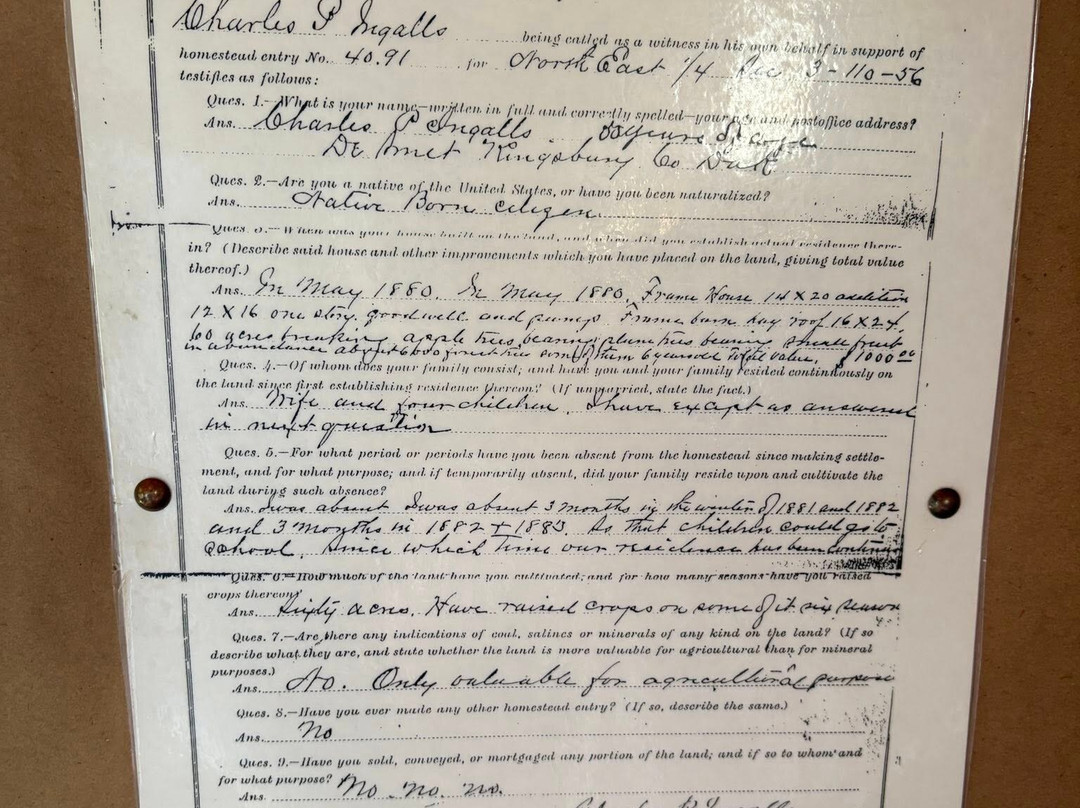 Charles P Ingalls being called as a witness in his own behalf in support of
homestead entry No. 4091 for North East 1/4 Sec 3-110-56
testifies as follows:
Ques. 1.—What is your name—written in full and correctly spelled—your age and postoffice address?
Ans. Charles P Ingalls 50 years of age
De Smet Kingsbury Co Dak
Ques. 2.—Are you a native of the United States, or have you been naturalized?
Ans. Native Born citizen
Ques. 3.—When was your house built on the land, and when did you establish actual residence there-
in? (Describe said house and other improvements which you have placed on the land, giving total value
thereof.)
Ans. In May 1880. In May 1880. Frame House 14 X 20 addition
12 X 16 one story. good well and pump. Frame barn hay roof 16 X 24.
60 acres breaking apple trees bearing plum trees bearing small fruit
in abundance about 600 fruit trees some of them 6 years old Total value, $1000 00
Ques. 4.—Of whom does your family consist; and have you and your family resided continuously on
the land since first establishing residence thereon? (If unmarried, state the fact.)
Ans. Wife and four children. I have except as answered
in next question
Ques. 5.—For what period or periods have you been absent from the homestead since making settle-
ment, and for what purpose; and if temporarily absent, did your family reside upon and cultivate the
land during such absence?
Ans. I was absent I was absent 3 months in the winter of 1881 and 1882
and 3 months in 1882 + 1883. So that children could go to
school. Since which time our residence has been continuous
Ques. 6.—How much of the land have you cultivated, and for how many seasons have you raised
crops thereon?
Ans. Sixty acres. Have raised crops on some of it six season
Ques. 7.—Are there any indications of coal, salines or minerals of any kind on the land? (If so
describe what they are, and state whether the land is more valuable for agricultural than for mineral
purposes.)
Ans. No. Only valuable for agricultural purpose
Ques. 8.—Have you ever made any other homestead entry? (If so, describe the same.)
Ans. No
Ques. 9.—Have you sold, conveyed, or mortgaged any portion of the land; and if so to whom and
for what purpose?
Ans. No. no. no.
Charles P Ingalls